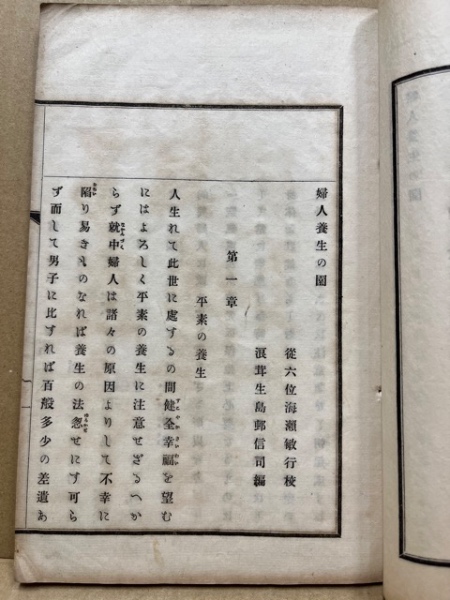 婦人養生の園
從六位海瀬敏行校
浪華生島郵信司編
第一章
平素の養生
人生れて此世に處するの間健全幸福を望む
にはよろしく平素の養生に注意せざるへか
らず就中婦人は諸々の原因よりして不幸に
陥り易きものなれば養生の法忽せにす可ら
ず而して男子に比すれば百般多少の差違あ